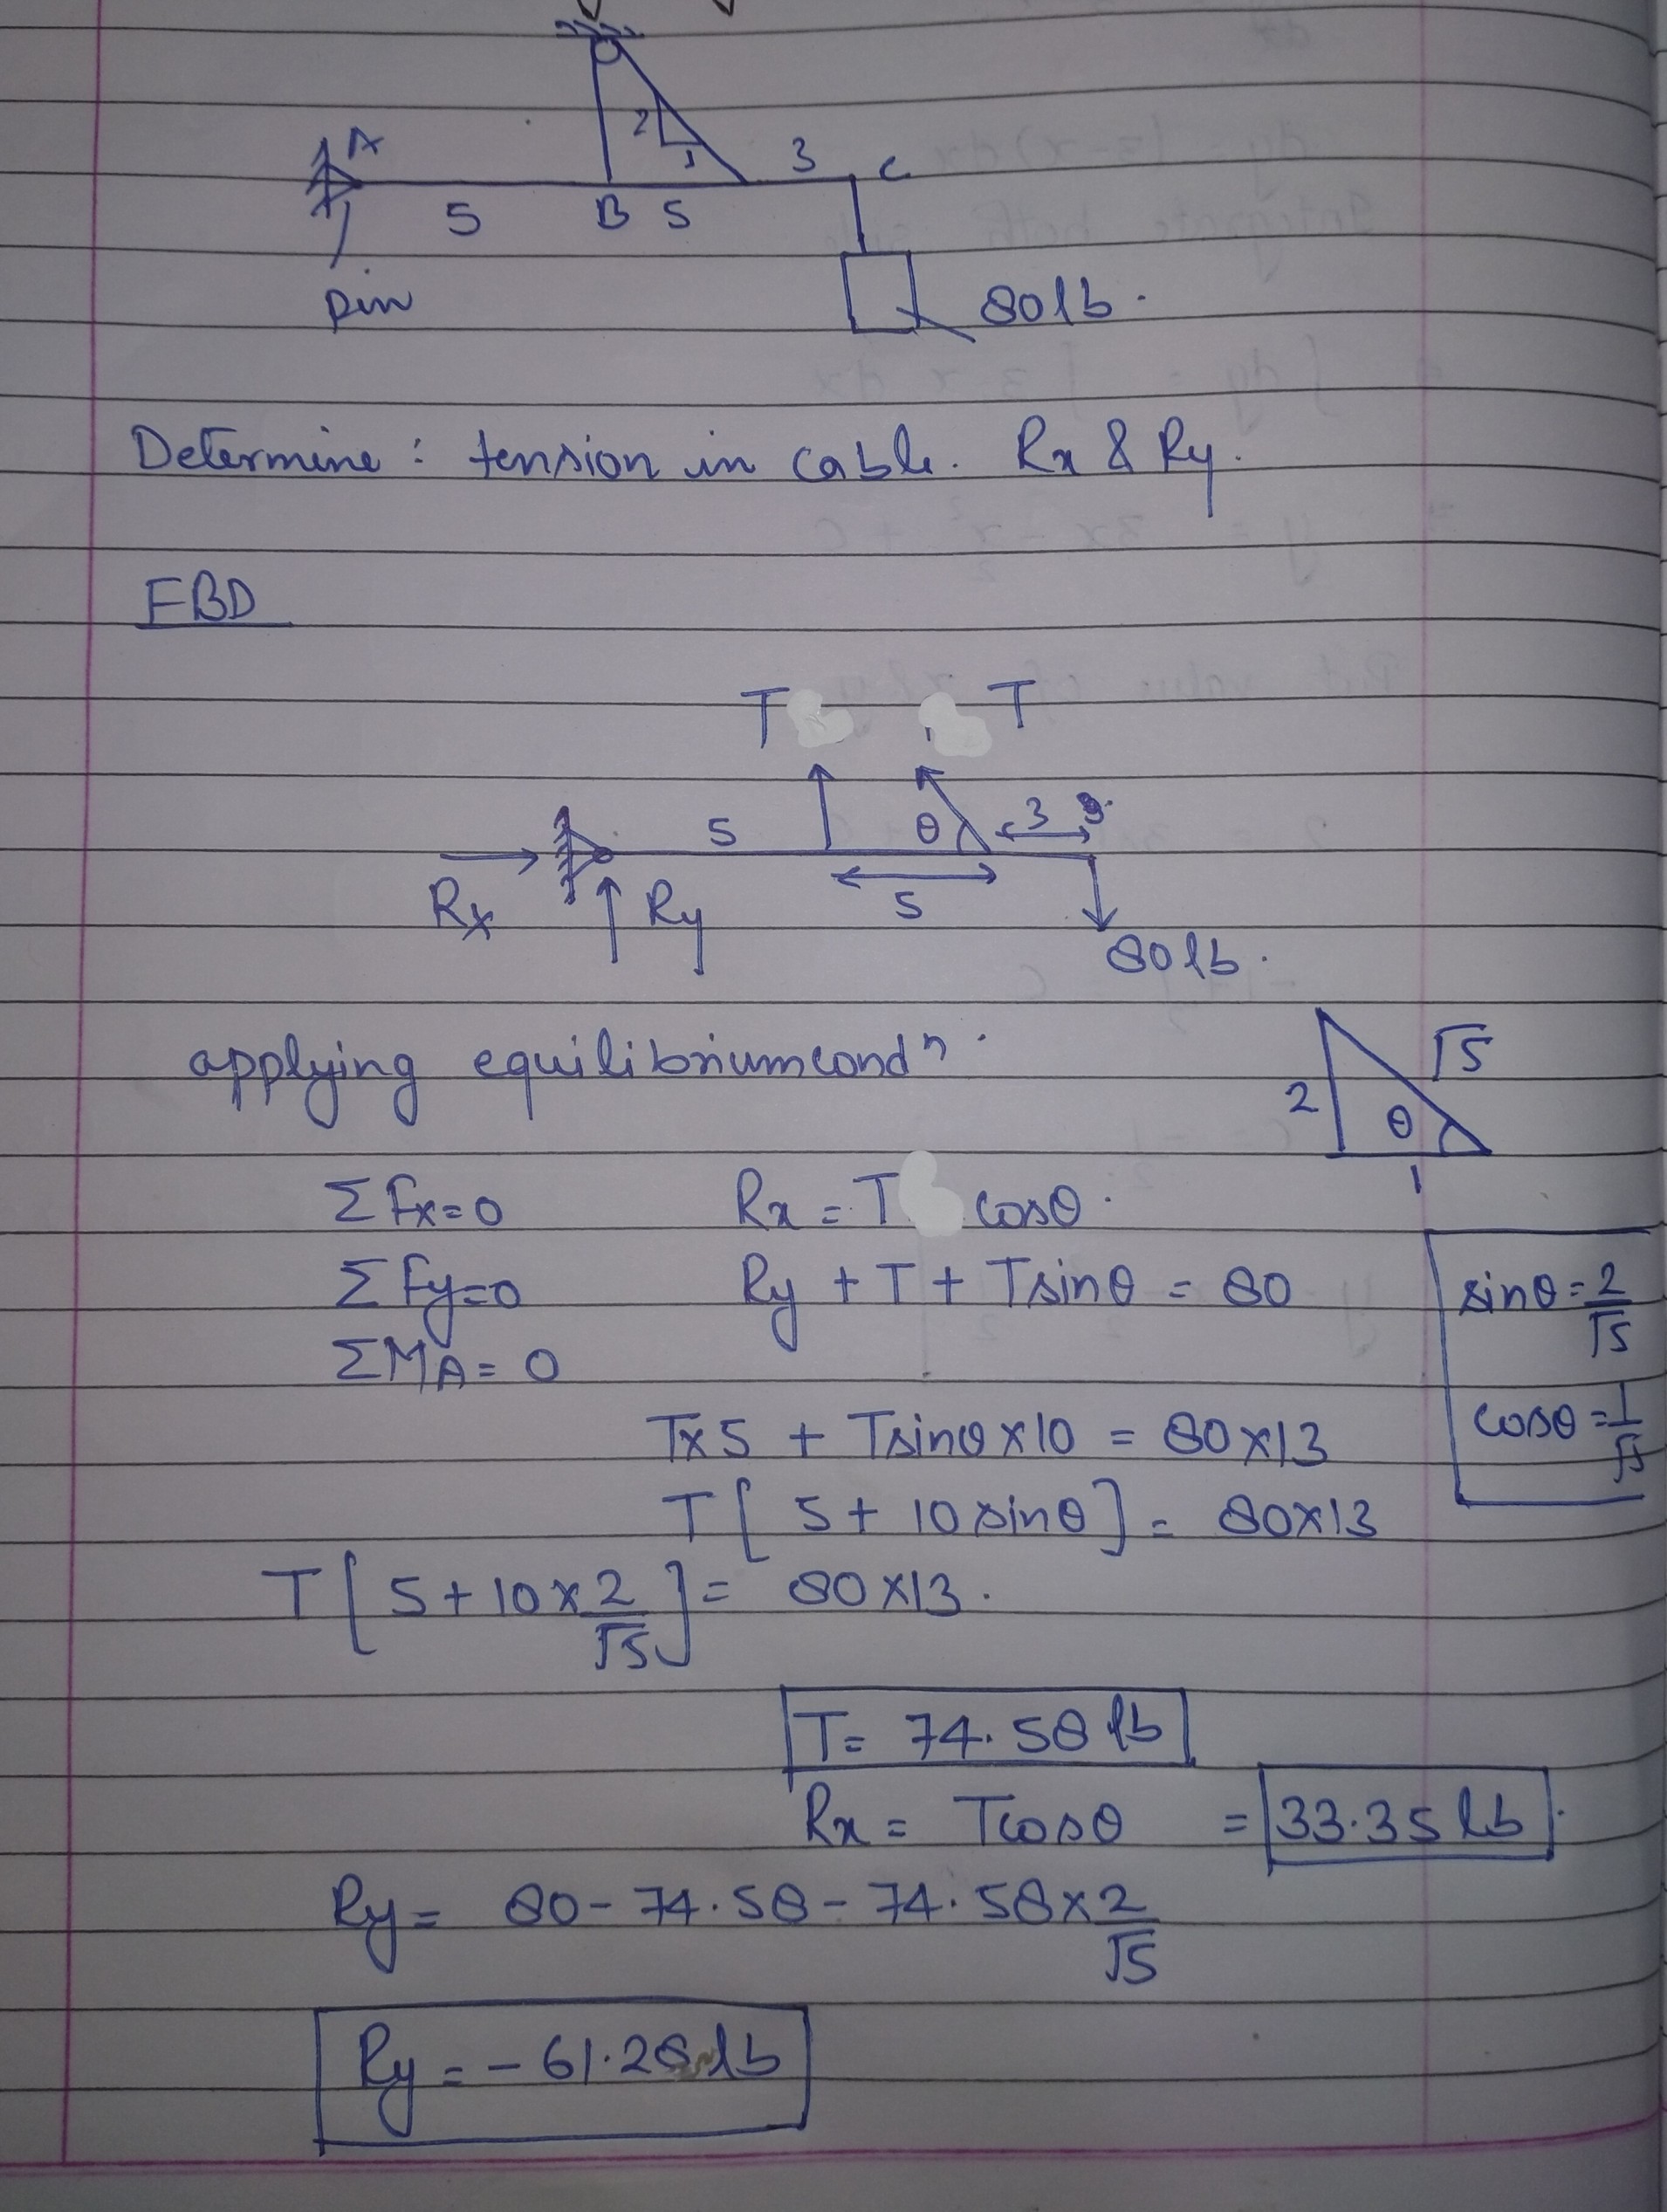 A
2
1
3
C
5
B
5
pin
80 lb.
Determine : tension in cable. Rx & Ry.
FBD
T
T
5
θ
3
Rx
Ry
5
80 lb.
applying equilibrium condⁿ.
2
√5
θ
1
ΣFx=0 Rx = T cosθ.
ΣFy=0 Ry + T + Tsinθ = 80
sinθ = 2/√5
ΣMA = 0
cosθ = 1/√5
T×5 + Tsinθ×10 = 80×13
T[ 5 + 10 sinθ] = 80×13
T[ 5 + 10 × 2/√5 ] = 80×13.
T = 74.58 lb
Rx = Tcosθ = 33.35 lb.
Ry = 80 - 74.58 - 74.58 × 2/√5
Ry = - 61.28 lb